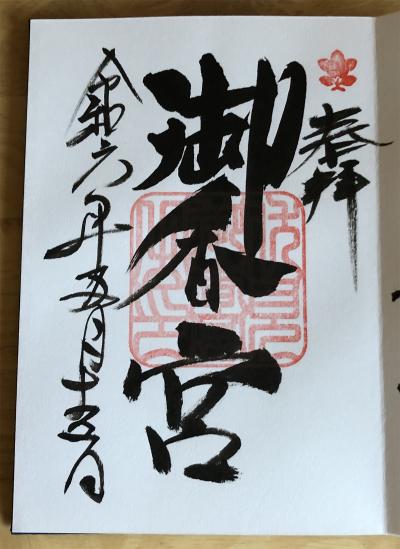 奉拝
御香宮
令和六年五月十五日